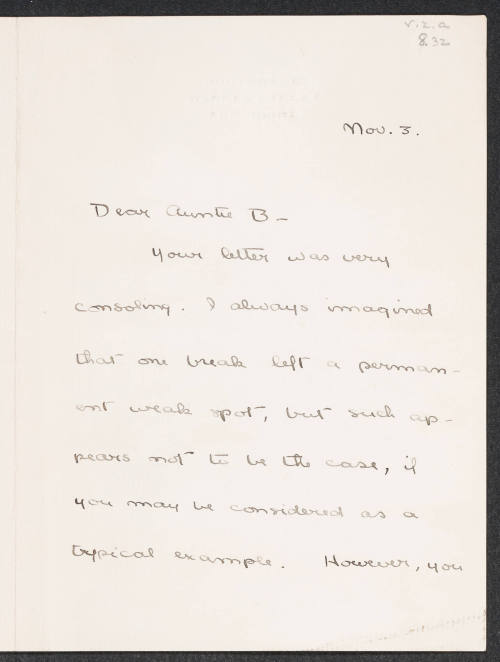 v.2.a
8.32
Nov. 3.
Dear Auntie B-
Your letter was very
consoling. I always imagined
that one break left a perman-
ent weak spot, but such ap-
pears not to be the case, if
you may be considered as a
typical example. However, you